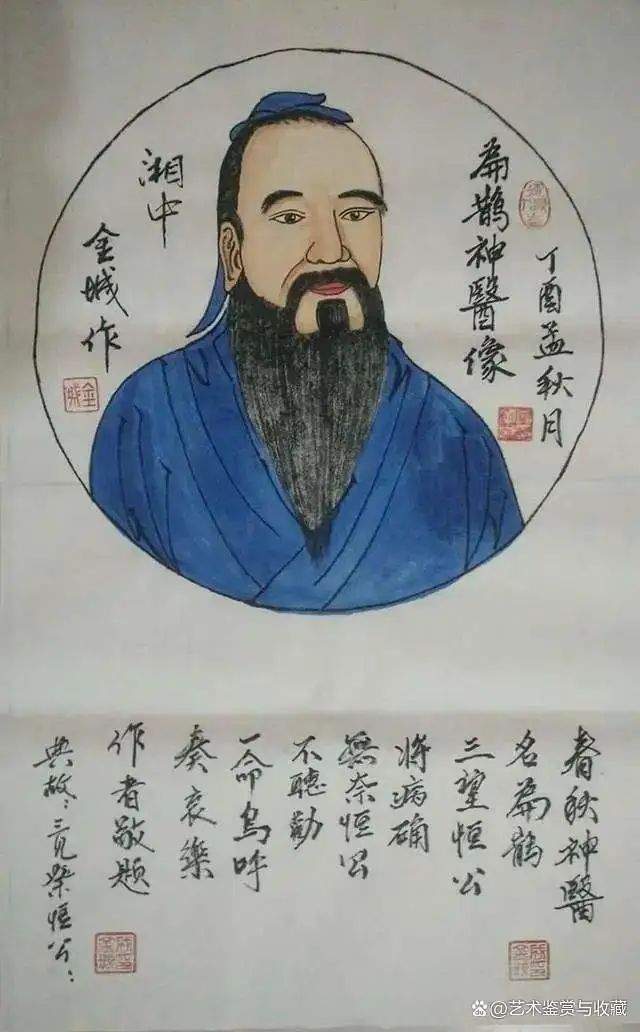 丁酉孟秋月
扁鵲神醫像
湘中
金城作
春秋神醫
名扁鵲
三望恒公
將病确
無奈恒公
不聽勸
一命烏呼
奏哀樂
作者敬題
典故：三見蔡恒公：
金城
@艺术鉴赏与收藏